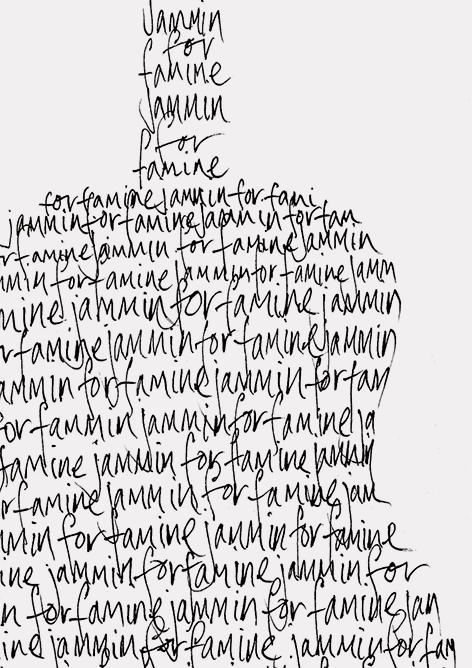 Jammin
for
famine
Jammin
for
famine
forfaminejamminforfami
jamminforfaminejamminforfam
rfaminejammin forfaminejammin
mmin forfaminejamminforfaminejamm
mine jamminforfaminejammin
rfaminejamminforfaminejammin
ammin forfaminejamminforfam
forfammin jamminforfamineja
famine jammin forfaminejammin
rfaminejammin.forfaminejam
mmin forfaminejamminforfamine
ine jamminforfamine jammin for
n forfaminejammin forfaminejam
inejammin forfamine jamminforfam